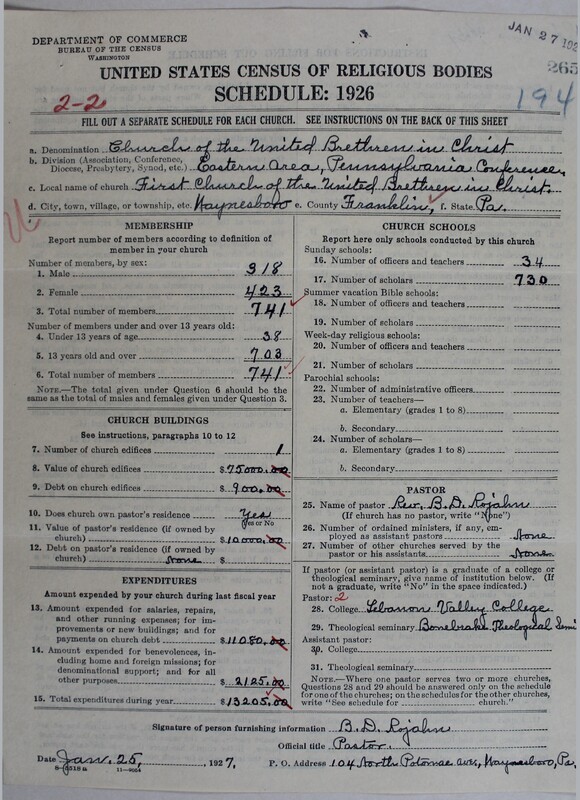 JAN 27 192
DEPARTMENT OF COMMERCE
BUREAU OF THE CENSUS
WASHINGTON
265
UNITED STATES CENSUS OF RELIGIOUS BODIES
SCHEDULE: 1926
2-2
194
FILL OUT A SEPARATE SCHEDULE FOR EACH CHURCH. SEE INSTRUCTIONS ON THE BACK OF THIS SHEET
a. Denomination Church of the United Brethren in Christ
b. Division (Association, Conference, Diocese, Presbytery, Synod, etc.) Eastern Area, Pennsylvania Conference.
c. Local name of church First Church of the United Brethren in Christ.
d. City, town, village, or township, etc. Waynesboro e. County Franklin, f. State Pa.
MEMBERSHIP
Report number of members according to definition of member in your church
Number of members, by sex:
1. Male 318
2. Female 423
3. Total number of members 741
Number of members under and over 13 years old:
4. Under 13 years of age 38
5. 13 years old and over 703
6. Total number of members 741
NOTE.—The total given under Question 6 should be the same as the total of males and females given under Question 3.
CHURCH BUILDINGS
See instructions, paragraphs 10 to 12
7. Number of church edifices 1
8. Value of church edifices $75000.00
9. Debt on church edifices $900.00
10. Does church own pastor's residence? Yes
Yes or No
11. Value of pastor's residence (if owned by church) $10000.00
12. Debt on pastor's residence (if owned by church) None $
EXPENDITURES
Amount expended by your church during last fiscal year
13. Amount expended for salaries, repairs, and other running expenses; for improvements or new buildings; and for payments on church debt $11080.00
14. Amount expended for benevolences, including home and foreign missions; for denominational support; and for all other purposes $2125.00
15. Total expenditures during year $13205.00
CHURCH SCHOOLS
Report here only schools conducted by this church
Sunday schools:
16. Number of officers and teachers 34
17. Number of scholars 730
Summer vacation Bible schools:
18. Number of officers and teachers
19. Number of scholars
Week-day religious schools:
20. Number of officers and teachers
21. Number of scholars
Parochial schools:
22. Number of administrative officers
23. Number of teachers—
a. Elementary (grades 1 to 8)
b. Secondary
24. Number of scholars—
a. Elementary (grades 1 to 8)
b. Secondary
PASTOR
25. Name of pastor Rev. B. D. Rojahn
(If church has no pastor, write "None")
26. Number of ordained ministers, if any, employed as assistant pastors None
27. Number of other churches served by the pastor or his assistants None
If pastor (or assistant pastor) is a graduate of a college or theological seminary, give name of institution below. (If not a graduate, write "No" in the space indicated.)
Pastor: 2
28. College Lebanon Valley College
29. Theological seminary Bonebrake Theological Semi
Assistant pastor:
30. College
31. Theological seminary
NOTE.—Where one pastor serves two or more churches, Questions 28 and 29 should be answered only on the schedule for one of the churches; on the schedules for the other churches, write "See schedule for ............ church."
Signature of person furnishing information B. D. Rojahn
Official title Pastor.
Date Jan. 25, 1927. P. O. Address 104 North Potomac ave., Waynesboro, Pa.